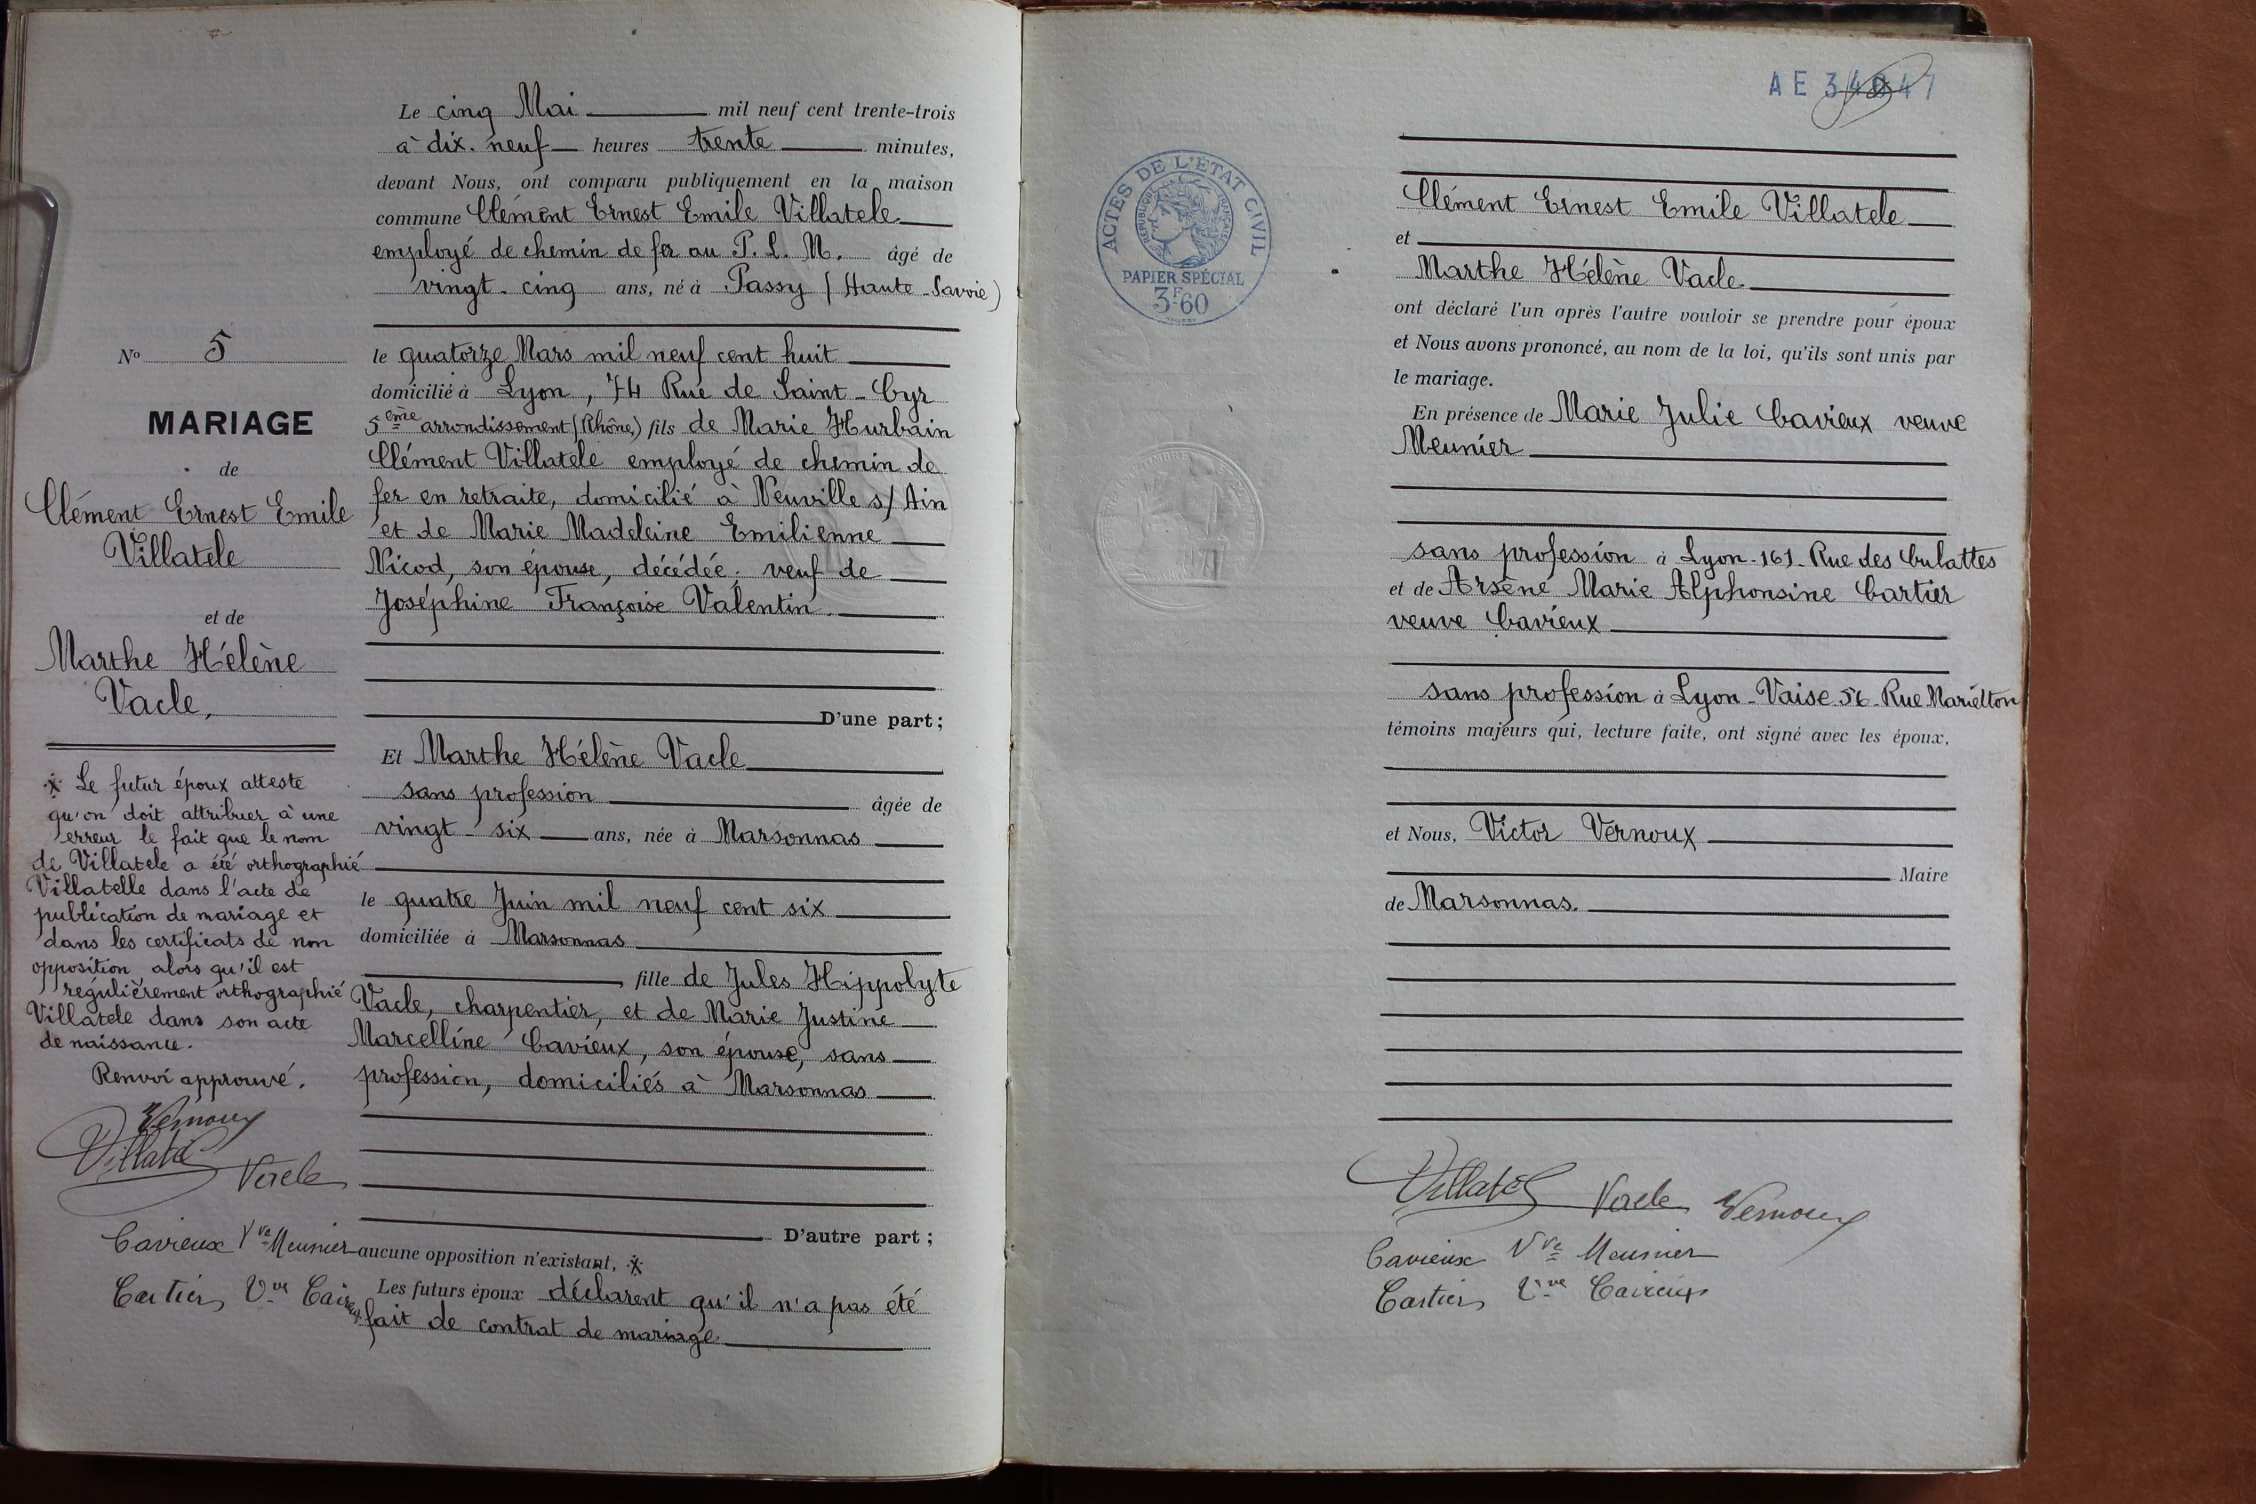 Le cinq Mai mil neuf cent trente-trois
à dix. neuf heures trente minutes,
devant Nous, ont comparu publiquement en la maison
commune Clément Ernest Emile Villatele
employé de chemin de fer au P. L. M. âgé de
vingt-cinq ans, né à Passy (Haute-Savoie)
le quatorze Mars mil neuf cent huit
domicilié à Lyon, 74 Rue de Saint-Cyr
5ème arrondissement (Rhône,) fils de Marie Hurbain
Clément Villatele employé de chemin de
fer en retraite, domicilié à Neuville s/ Ain
et de Marie Madeleine Emilienne
Nicod, son épouse, décédée; veuf de
Joséphine Françoise Valentin.
D'une part;
Et Marthe Hélène Vacle
sans profession âgée de
vingt-six ans, née à Marsonnas
le quatre Juin mil neuf cent six
domiciliée à Marsonnas
fille de Jules Hippolyte
Vacle, charpentier, et de Marie Justine
Marcelline Cavieux, son épouse, sans
profession, domiciliés à Marsonnas
D'autre part;
aucune opposition n'existant, *
Les futurs époux déclarent qu'il n'a pas été
fait de contrat de mariage
No 5
MARIAGE
de
Clément Ernest Emile
Villatele
et de
Marthe Hélène
Vacle,
* Le futur époux atteste
qu'on doit attribuer à une
erreur le fait que le nom
de Villatele a été orthographié
Villatelle dans l'acte de
publication de mariage et
dans les certificats de non
opposition, alors qu'il est
régulièrement orthographié
Villatele dans son acte
de naissance.
Renvoi approuvé.
Vernoux
Villatele
Vacle
Cavieux Vve Meunier
Cartier Vve Cavieux
AE
ACTES DE L'ÉTAT CIVIL
RÉPUBLIQUE FRANÇAISE
PAPIER SPÉCIAL
3F60
Clément Ernest Emile Villatele
et
Marthe Hélène Vacle
ont déclaré l'un après l'autre vouloir se prendre pour époux
et Nous avons prononcé, au nom de la loi, qu'ils sont unis par
le mariage.
En présence de Marie Julie Cavieux veuve
Meunier
sans profession à Lyon-161-Rue des Culattes
et de Arsène Marie Alphonsine Cartier
veuve Cavieux
sans profession à Lyon-Vaise 56-Rue Mariétton
témoins majeurs qui, lecture faite, ont signé avec les époux,
et Nous, Victor Vernoux
Maire
de Marsonnas.
Villatele Vacle Vernoux
Cavieux Vve Meunier
Cartier Vve Cavieux